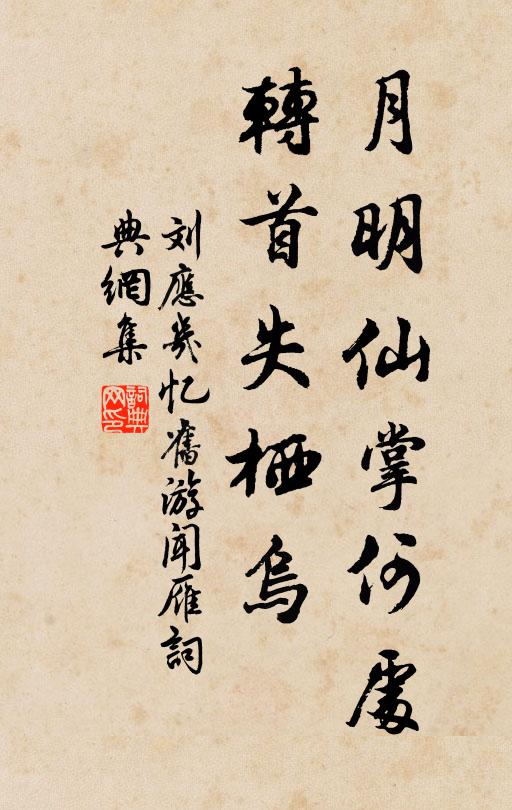 月明仙掌何處
轉首失栖烏
刘應幾忆舊游聞雁詞
典網集
詞典网印